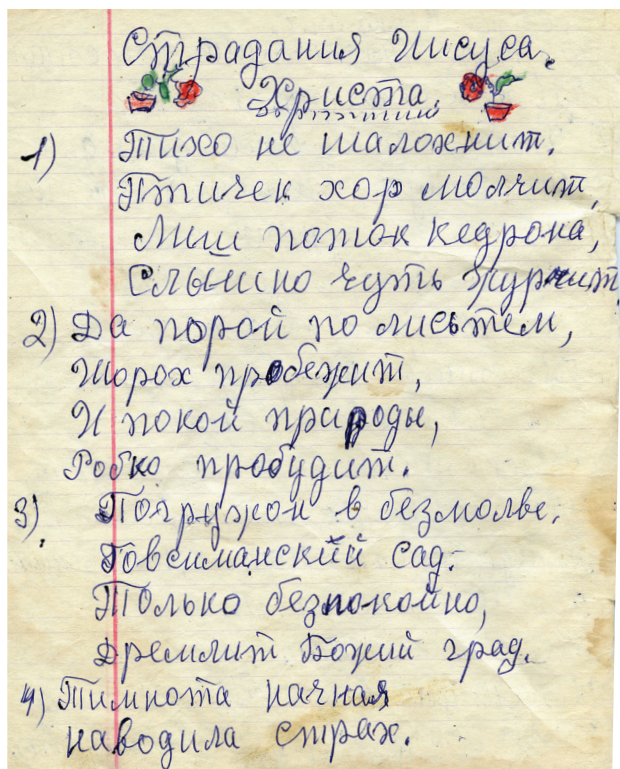 Страдания Иисуса
Христа.
1) Тихо не шалохнит.
Птичек хор молчит,
Лиш поток кедрона,
Слышно чуть журчит.
2) Да порой по лисьтем,
Шорох пробежит,
И покой природы,
Робко пробудит.
3) Погружон в безмолве.
Говсиманский сад.
Только безпокойно,
Дремлит Божий град.
4) Тимнота начная
наводила страх.